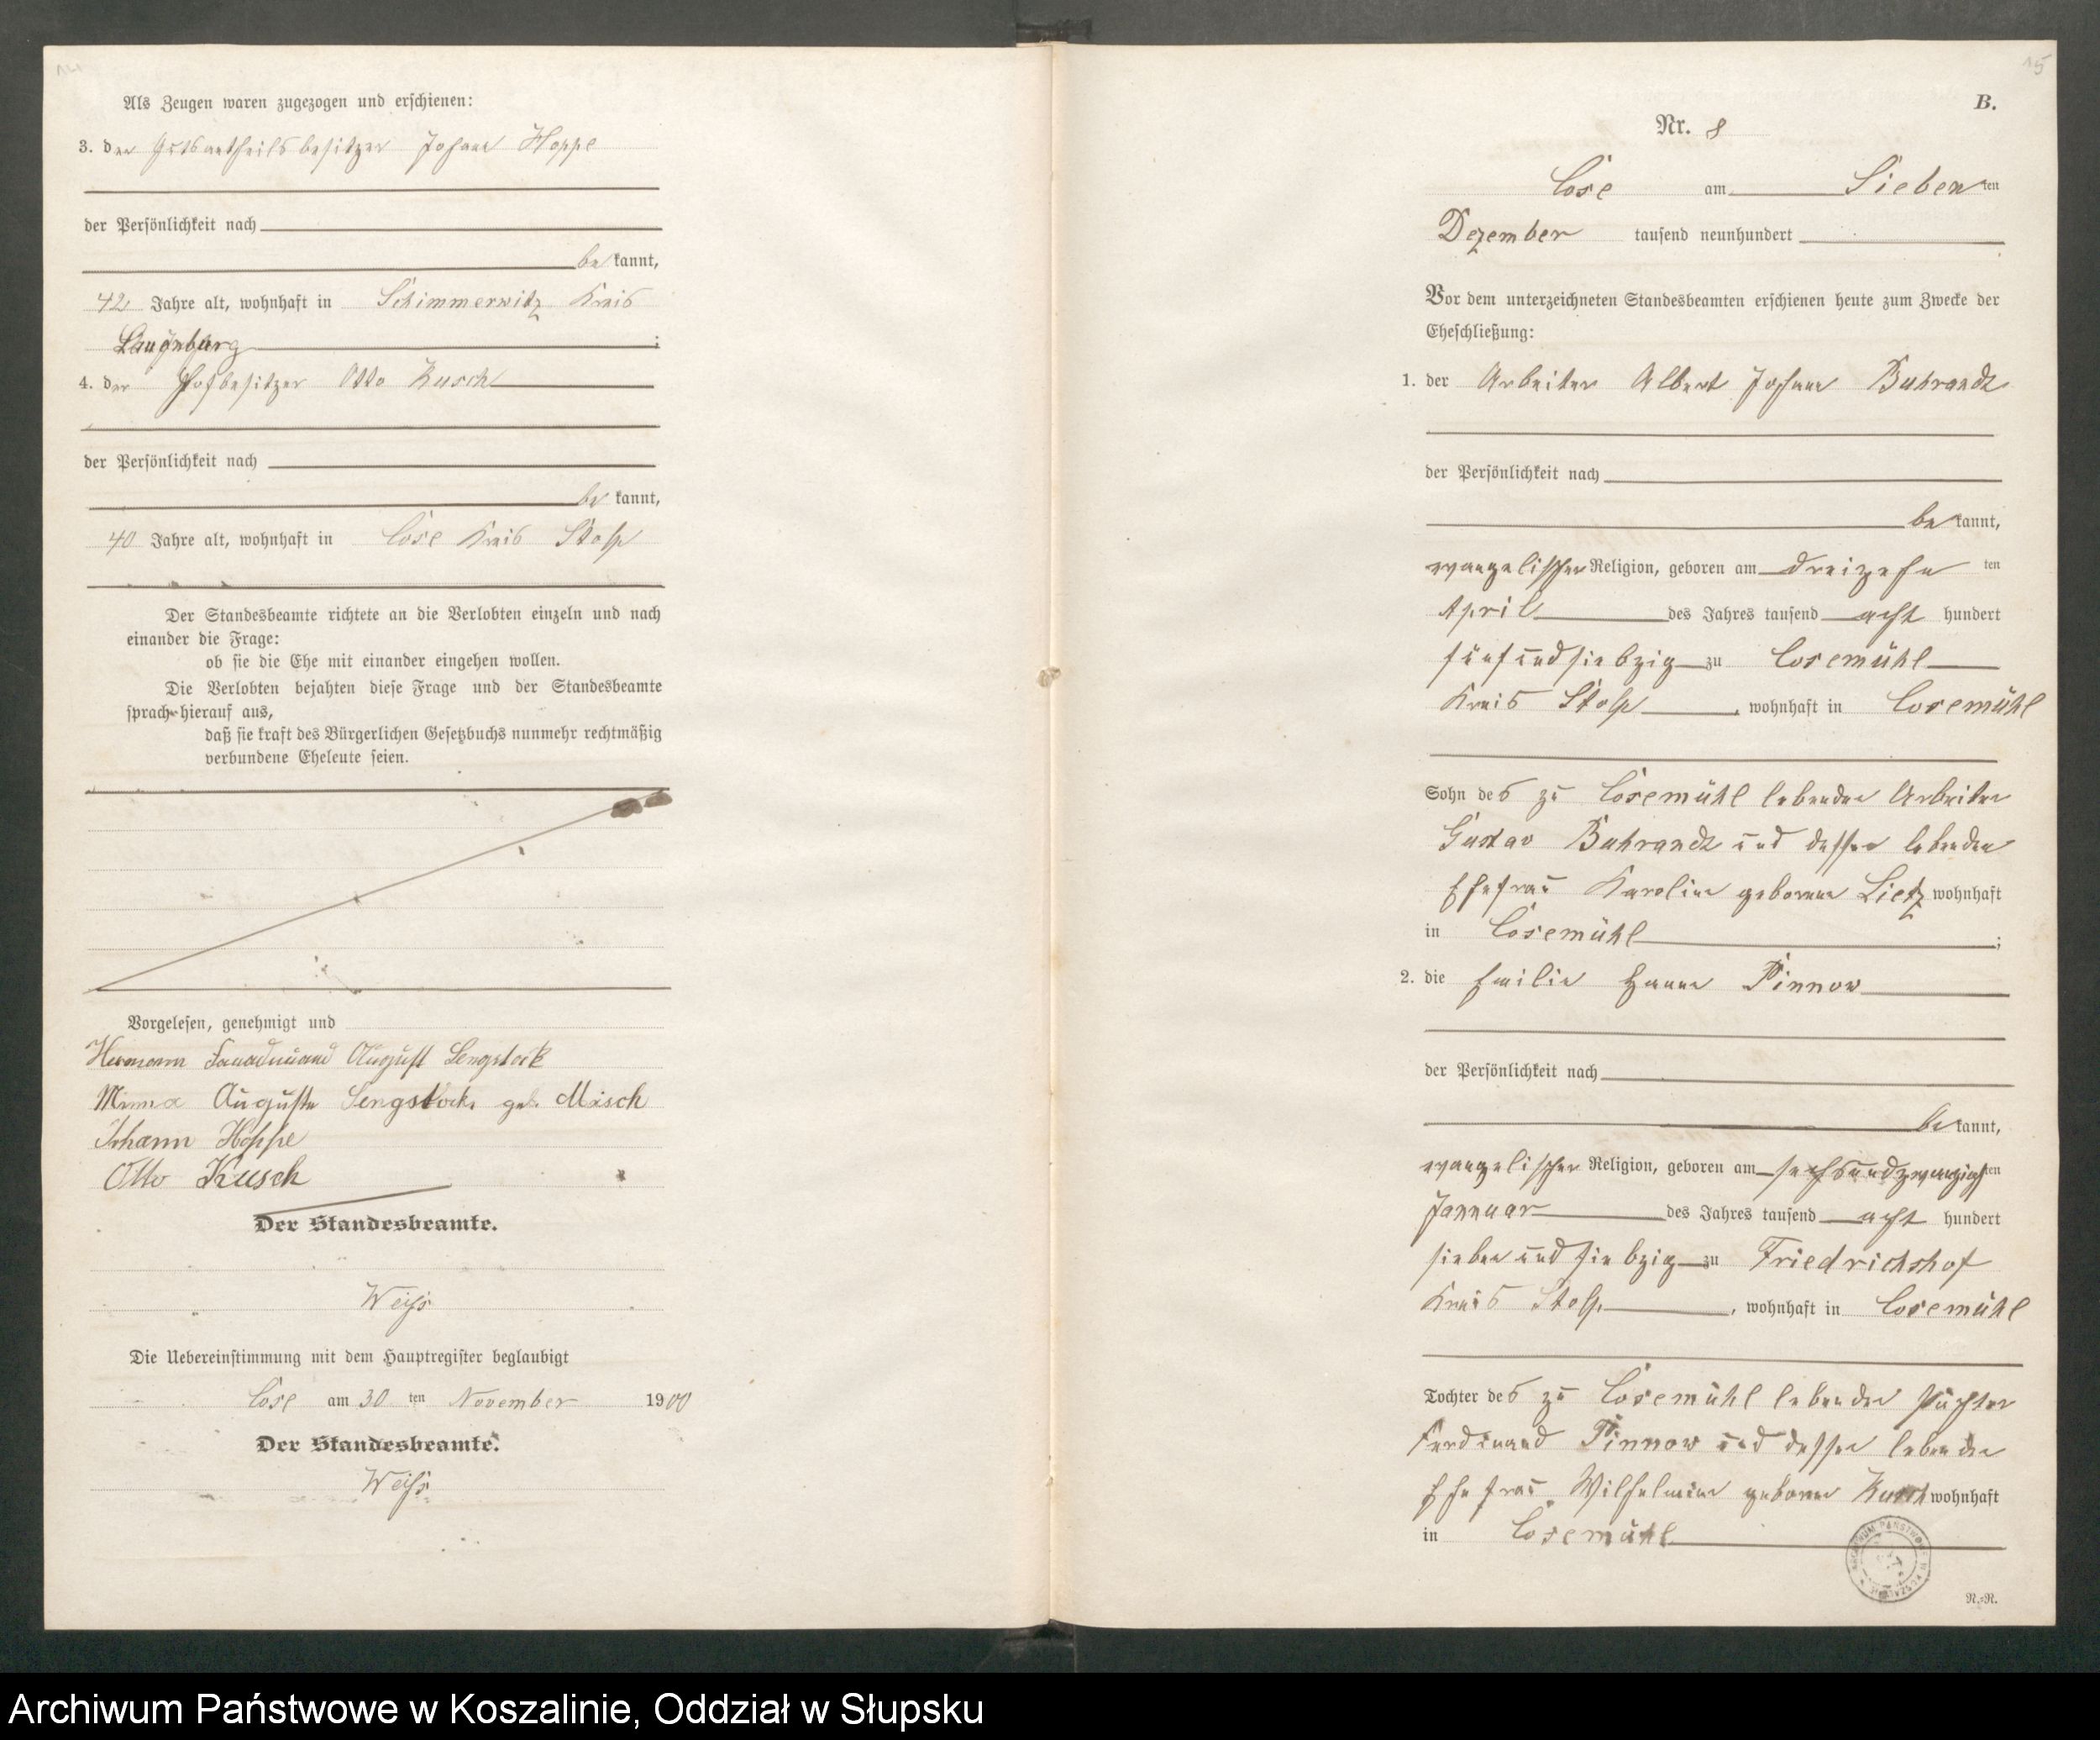 Als Zeugen waren zugezogen und erschienen:
3. der Gutsantheilsbesitzer Johann Hoppe
der Persönlichkeit nach
be kannt,
42 Jahre alt, wohnhaft in Schimmerwitz Kreis
Lauenburg ;
4. der Hofbesitzer Otto Kusch
der Persönlichkeit nach
be kannt,
40 Jahre alt, wohnhaft in Lose Kreis Stolp
Der Standesbeamte richtete an die Verlobten einzeln und nach
einander die Frage:
ob sie die Ehe mit einander eingehen wollen.
Die Verlobten bejahten diese Frage und der Standesbeamte
sprach hierauf aus,
daß sie kraft des Bürgerlichen Gesetzbuchs nunmehr rechtmäßig
verbundene Eheleute seien.
Vorgelesen, genehmigt und
Hermann August Lengstock
Minna Auguste Lengstock, geb. Misch
Johann Hoppe
Otto Kusch
Der Standesbeamte.
Weiß
Die Uebereinstimmung mit dem Hauptregister beglaubigt
Lose am 30 ten November 1900
Der Standesbeamte.
Weiß
15
B.
Nr. 8
Lose am Sieben ten
Dezember tausend neunhundert
Vor dem unterzeichneten Standesbeamten erschienen heute zum Zwecke der
Eheschließung:
1. der Arbeiter Albert Johann Buhrandt
der Persönlichkeit nach
be kannt,
evangelischer Religion, geboren am dreizehn ten
April des Jahres tausend acht hundert
fünf und siebzig zu Losemühl
Kreis Stolp , wohnhaft in Losemühl
Sohn des zu Losemühl lebenden Arbeiter
Gustav Buhrandt und dessen lebenden
Ehefrau Karoline geborene Lietz wohnhaft
in Losemühl ;
2. die Emilie Hanna Pinnow
der Persönlichkeit nach
be kannt,
evangelischer Religion, geboren am sechsundzwanzigsten
Jannuar des Jahres tausend acht hundert
sieben und siebzig zu Friedrichshof
Kreis Stolp , wohnhaft in Losemühl
Tochter des zu Losemühl lebenden Pächter
Ferdinand Pinnow und dessen lebenden
Ehefrau Wilhelmine geborene Kusch wohnhaft
in Losemühl
R.=R.
Archiwum Państwowe w Koszalinie, Oddział w Słupsku